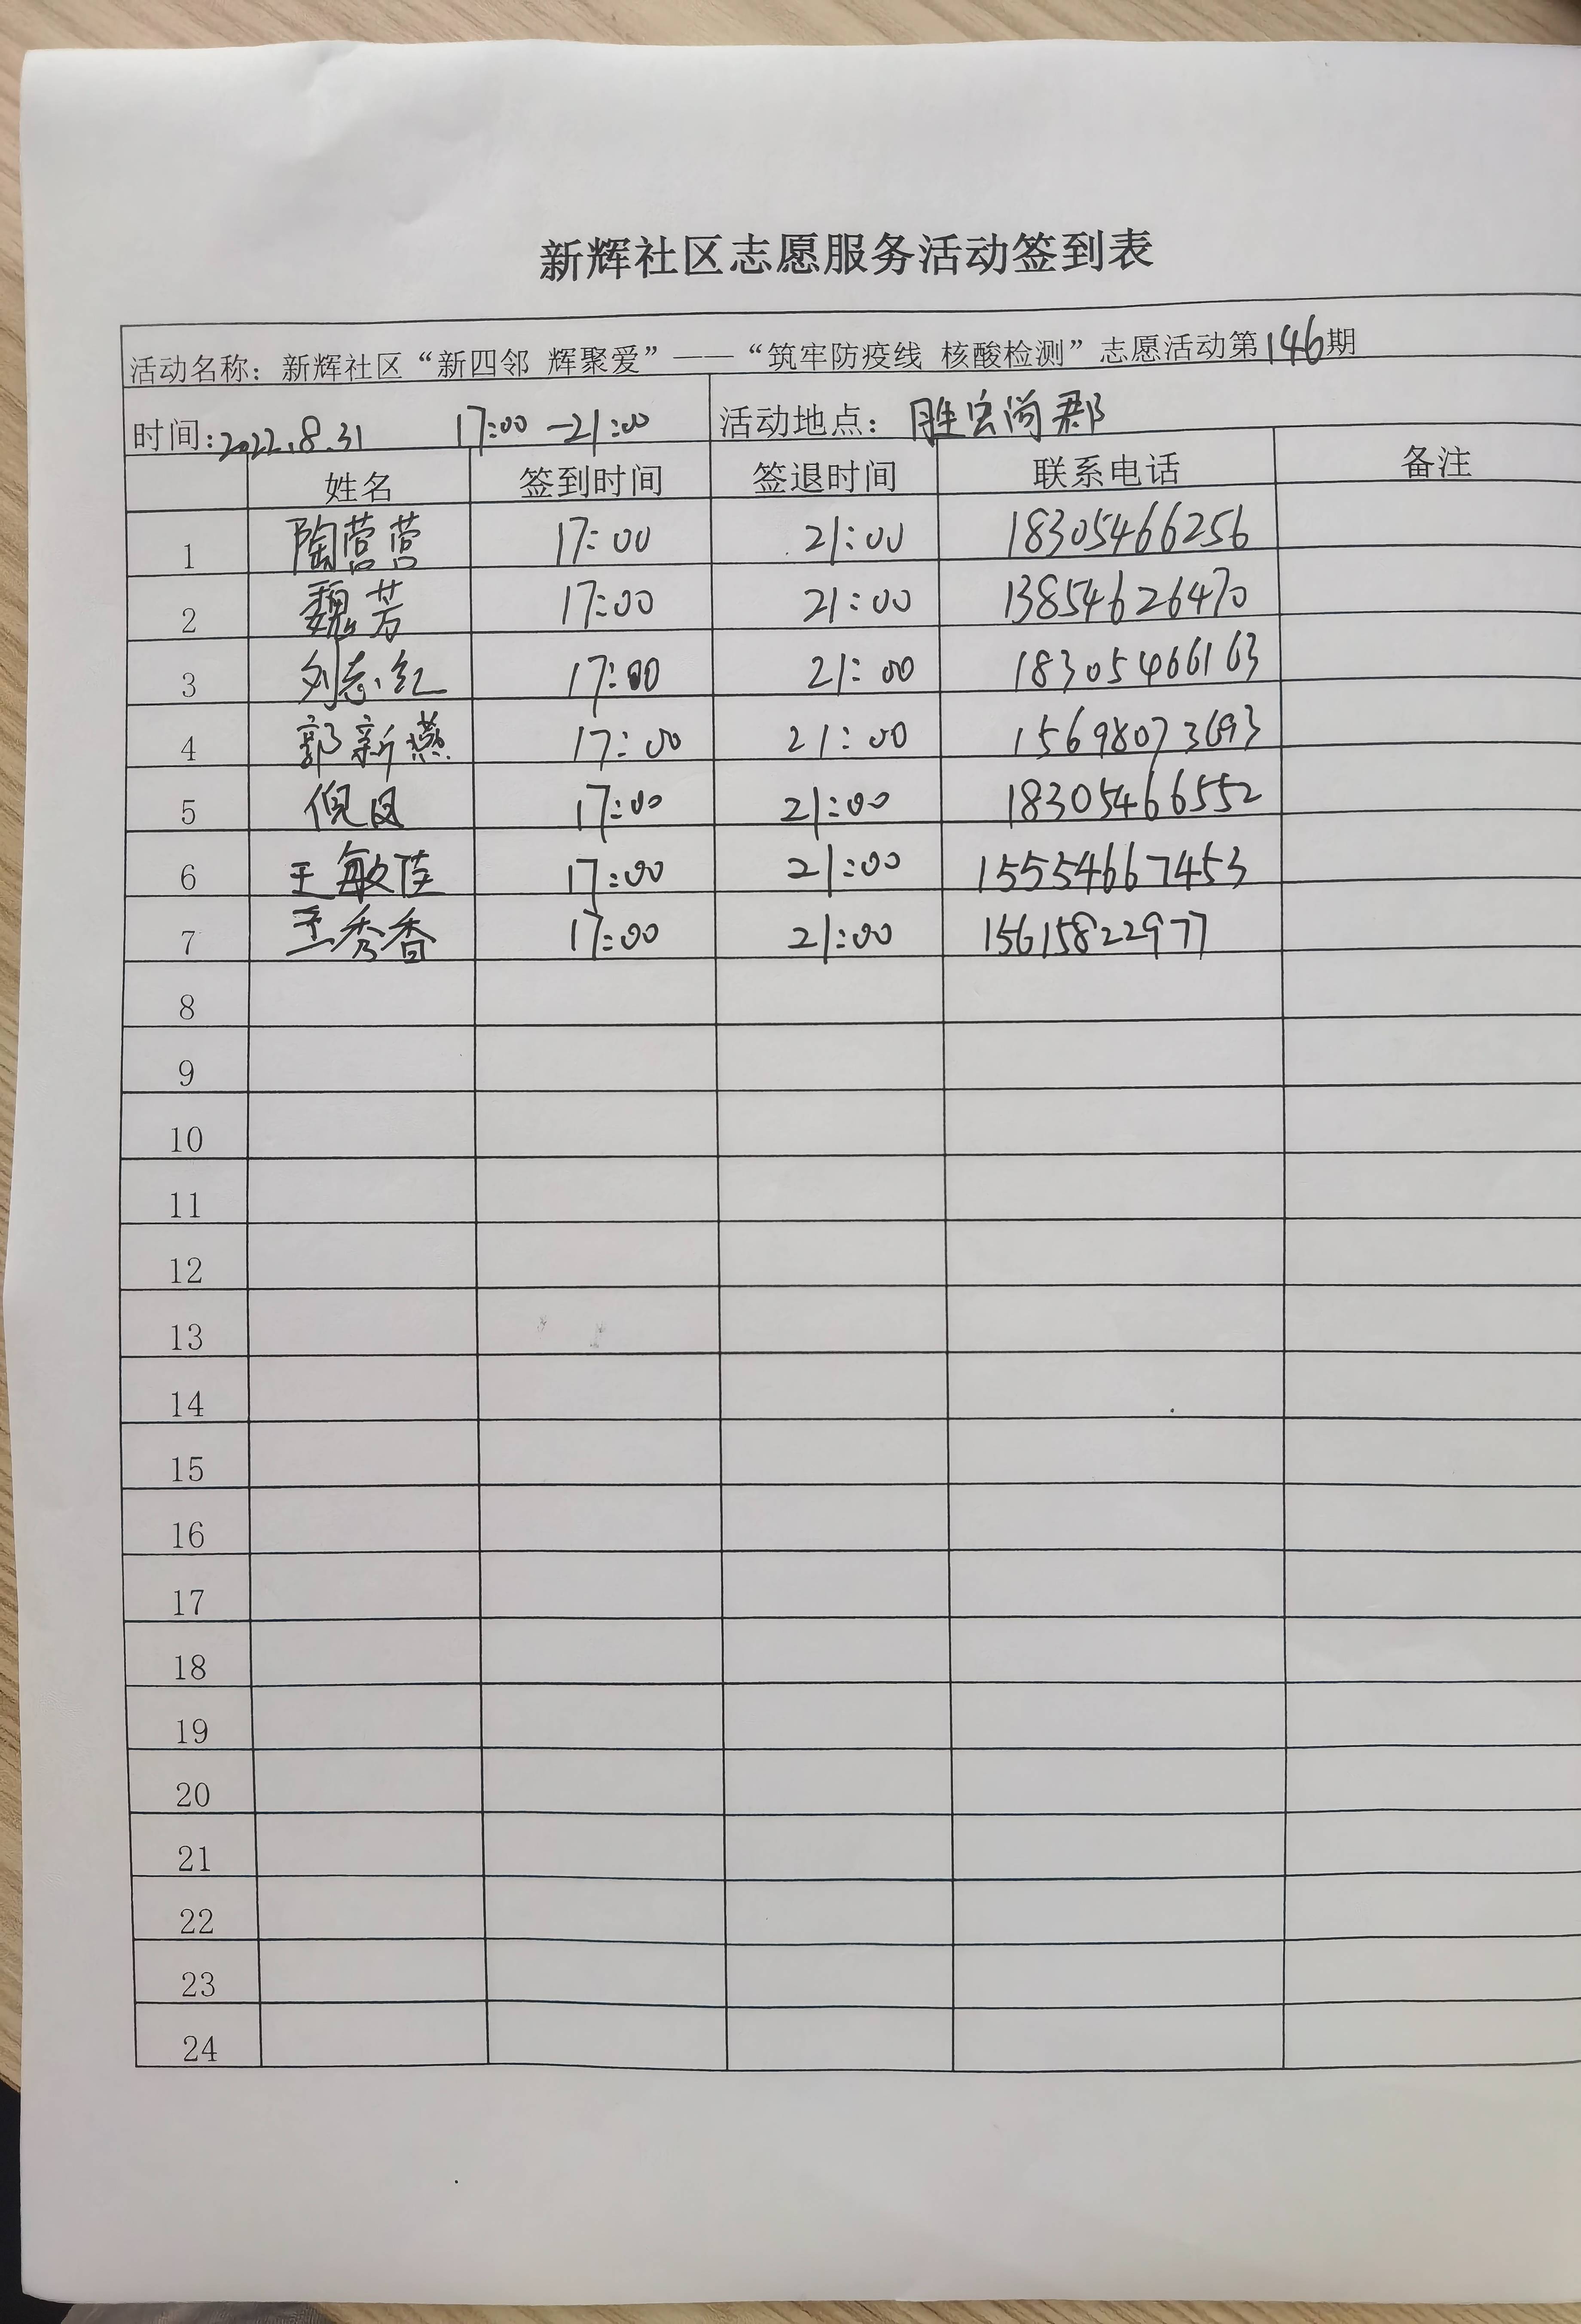 新辉社区志愿服务活动签到表
活动名称：新辉社区“新四邻 辉聚爱”——“筑牢防疫线 核酸检测”志愿活动第146期
时间：2022.8.31 17:00—21:00 活动地点：胜宏尚郡
姓名 签到时间 签退时间 联系电话 备注
1 陶营营 17:00 21:00 18305466256
2 魏芳 17:00 21:00 13854626470
3 刘志红 17:00 21:00 18305466163
4 郭新燕 17:00 21:00 15698073693
5 倪 17:00 21:00 18305466552
6 王敏佳 17:00 21:00 15554667453
7 王秀香 17:00 21:00 15615822977
8
9
10
11
12
13
14
15
16
17
18
19
20
21
22
23
24